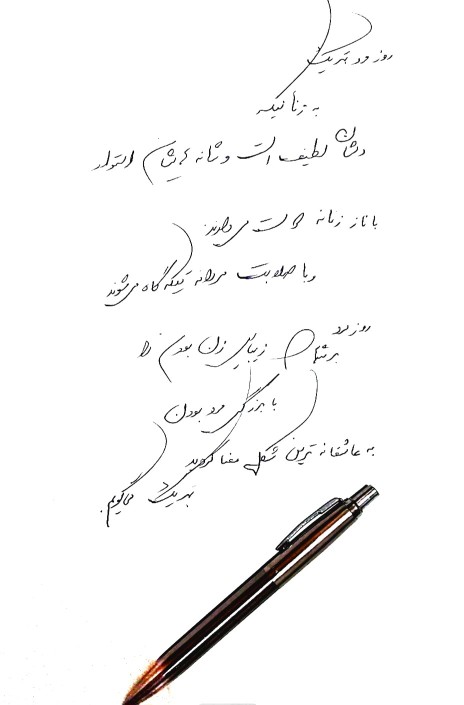 روز مرد تبریک
به زنانیکه
دلشان لطیف است و شانه هایشان استوار
با ناز زنانه حرکت می دارند
و با صلابت مردانه تکیه گاه می شوند
روز مرد
بر شما زیبایی زن بودن را
با بزرگی مرد بودن
به عاشقانه ترین شکل معنا کردید
تبریک میگویم.